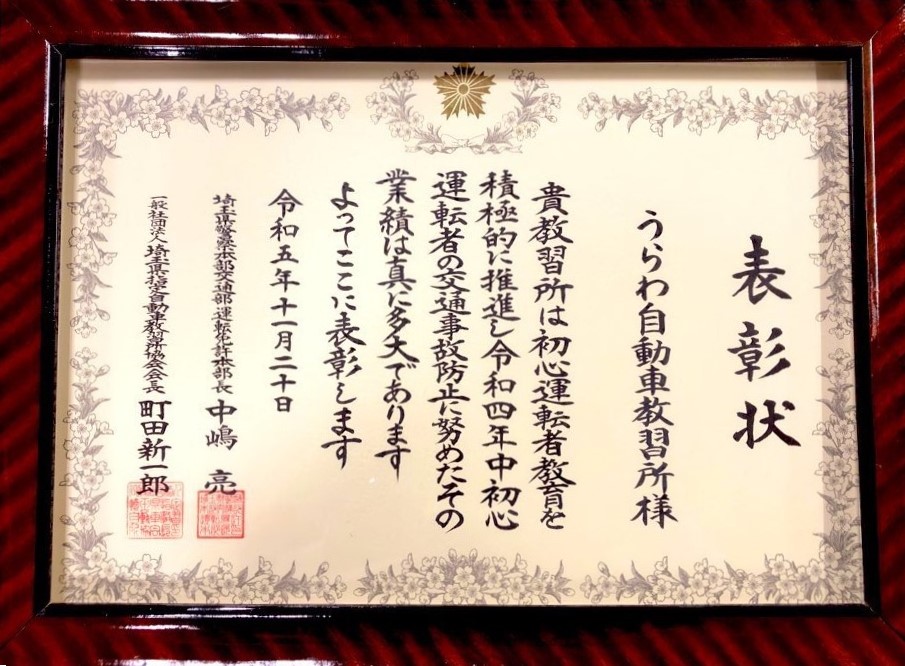 表彰状
うらわ自動車教習所様
貴教習所は初心運転者教育を
積極的に推進し令和四年中初心
運転者の交通事故防止に努めたその
業績は真に多大であります
よってここに表彰します
令和五年十一月二十日
埼玉県警察本部交通部運転免許本部長 中嶋 亮
一般社団法人埼玉県指定自動車教習所協会会長 町田新一郎